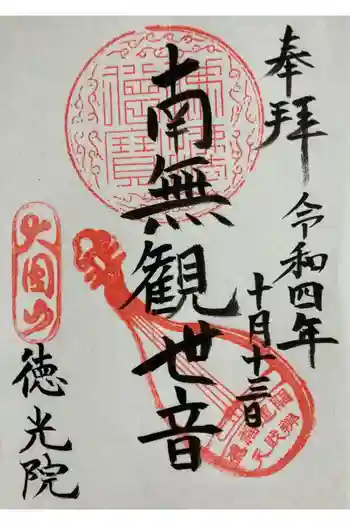 奉拝
令和四年
十月十三日
南無観世音
大圓山
徳光院
佛法僧寶